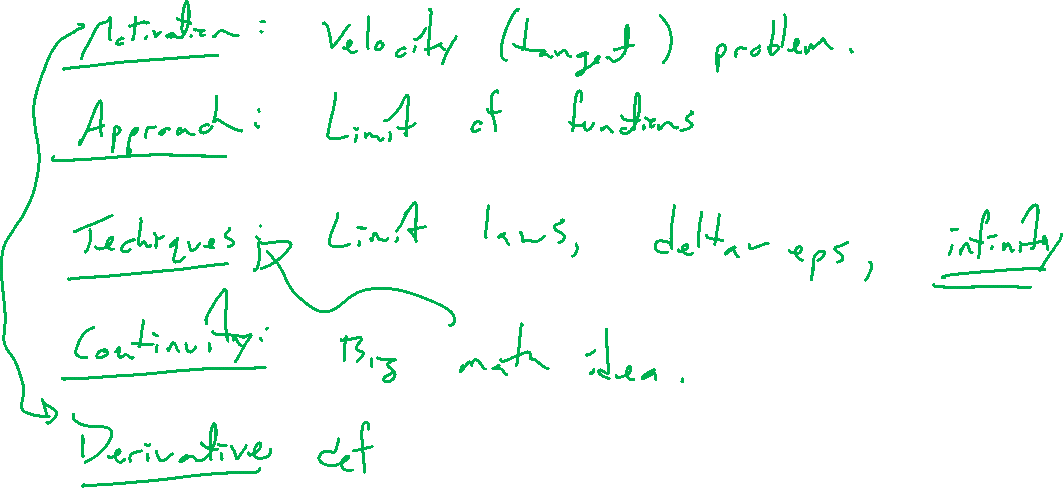 Motivation: Velocity (tangent) problem.
Approach: Limit of functions
Techniques: Limit laws, delta eps, infinity
Continuity: Big math idea.
Derivative def